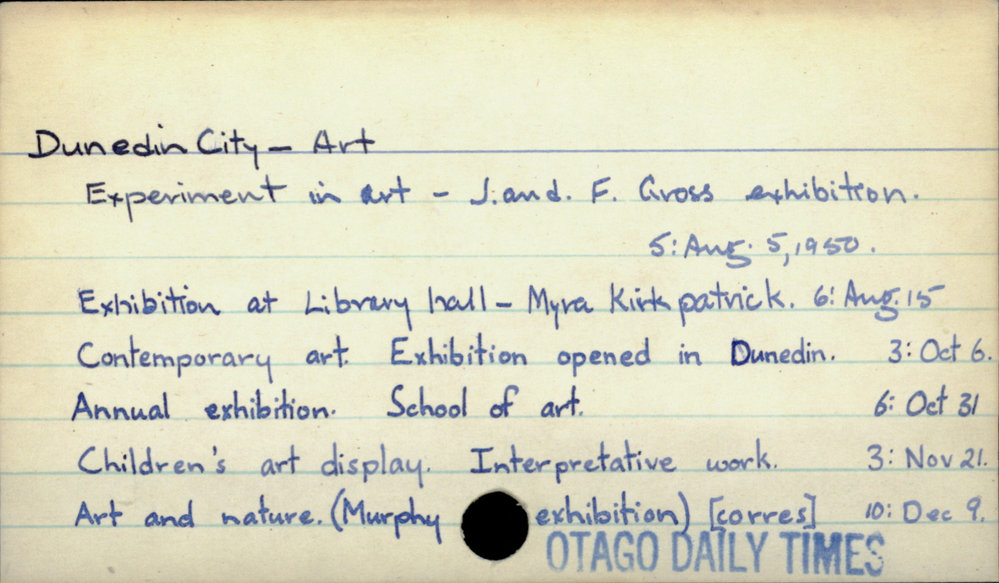 Dunedin City - Art
Experiment in art - J. and. F. Gross exhibition.
5: Aug. 5, 1950.
Exhibition at Library hall - Myra Kirkpatrick. 6: Aug. 15
Contemporary art. Exhibition opened in Dunedin. 3: Oct 6.
Annual exhibition. School of art. 6: Oct 31
Children's art display. Interpretative work. 3: Nov 21.
Art and nature. (Murphy exhibition) [corres] 10: Dec 9.
OTAGO DAILY TIMES